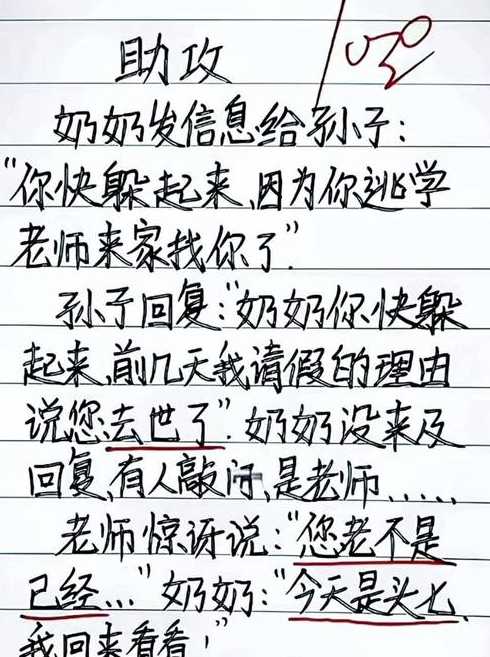 助攻
奶奶发信息给孙子:
“你快躲起来,因为你逃学
老师来家找你了”.
孙子回复:“奶奶你快躲
起来,前几天我请假的理由
说您去世了”.奶奶没来及
回复,有人敲门,是老师……
老师惊讶说:“您老不是
已经...”奶奶:“今天是头七,
我回来看看!”